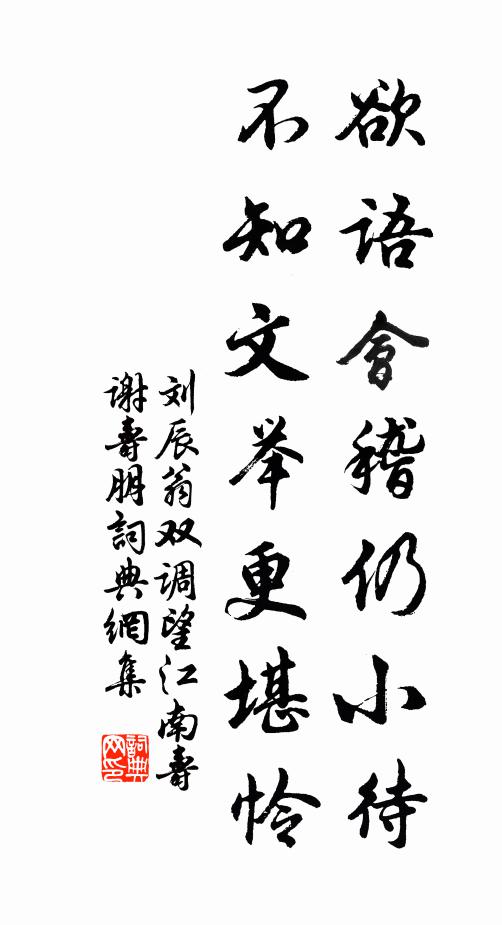 欲語會稽仍小待
不知文举更堪怜
刘辰翁双调望江南壽
谢壽朋詞典網集
詞典
网印